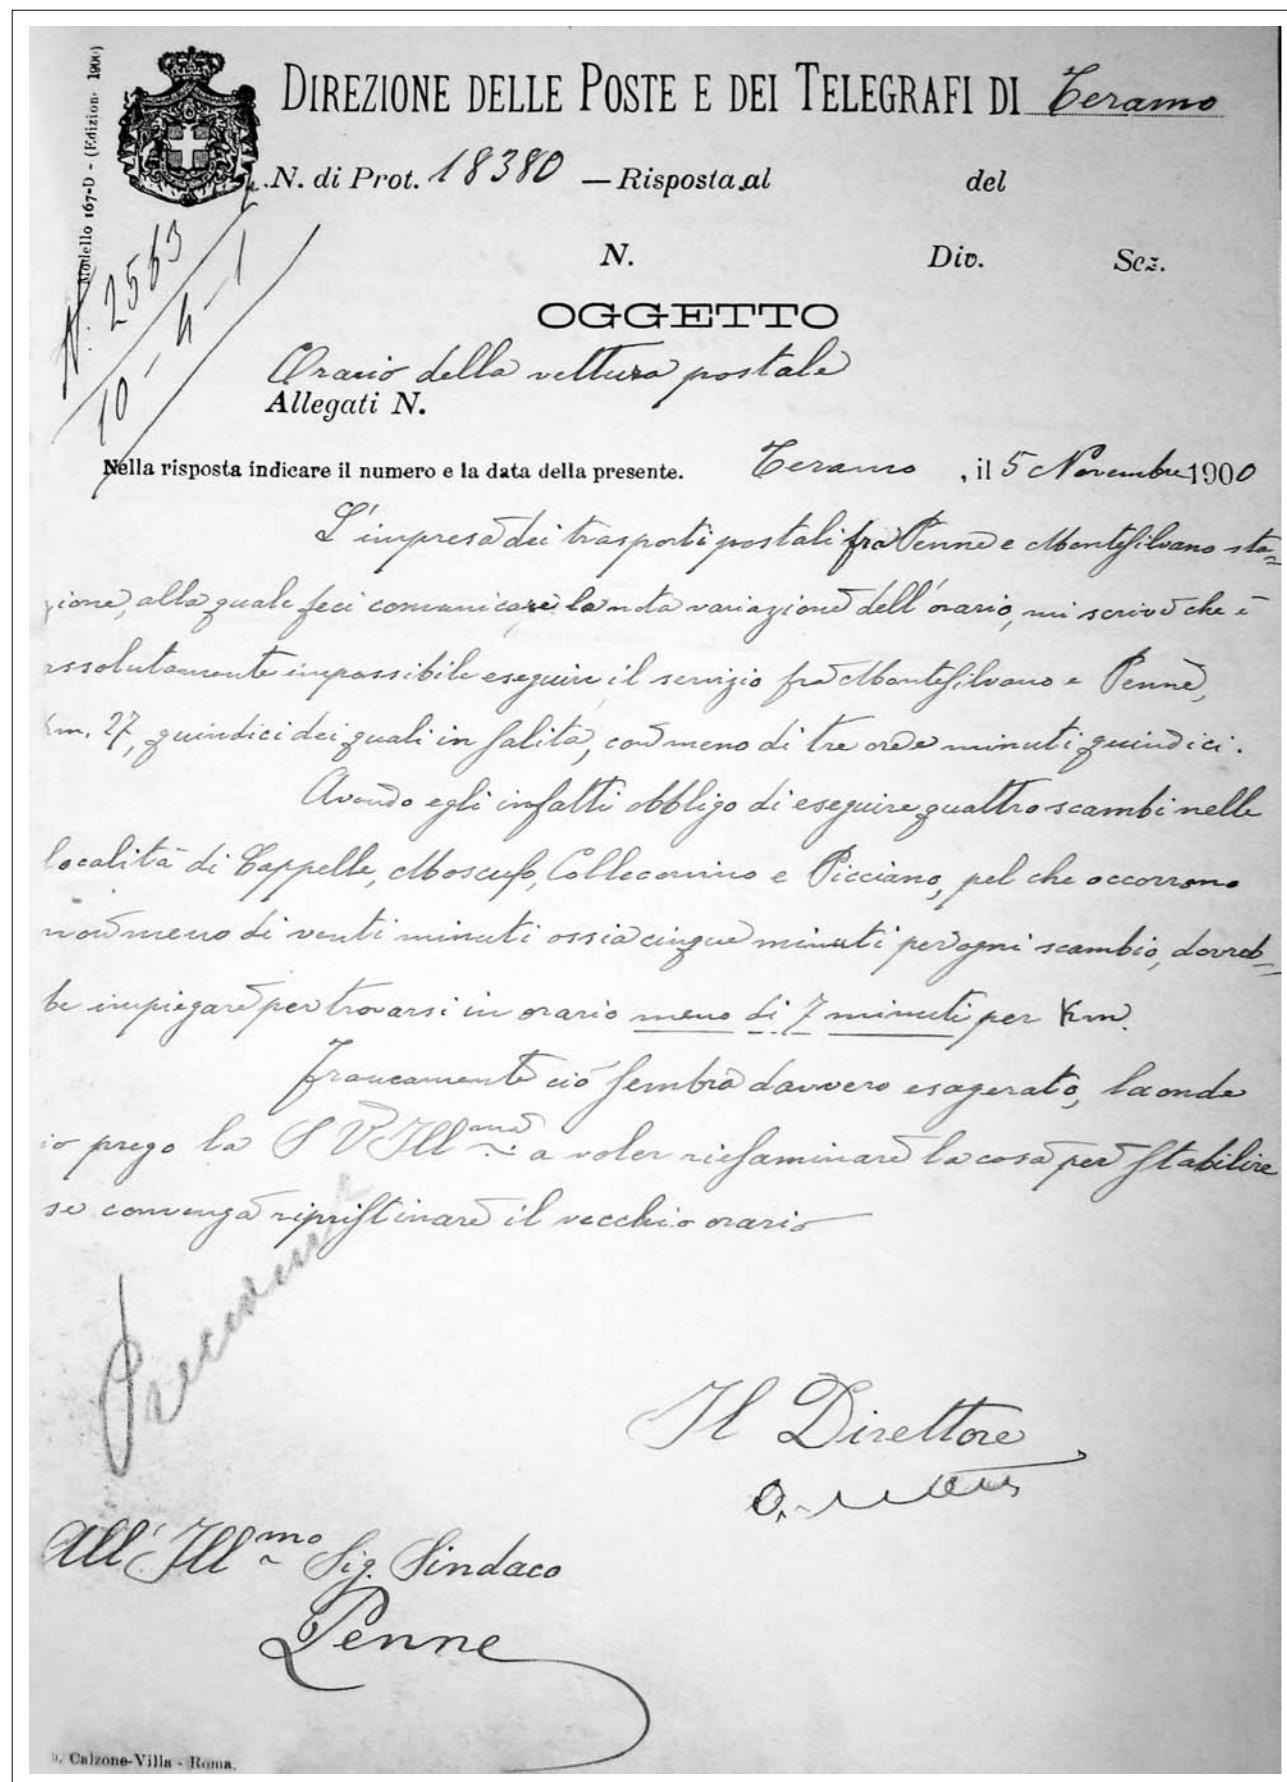 Modello 167-D - (Edizion 1900)
DIREZIONE DELLE POSTE E DEI TELEGRAFI DI Teramo
N. di Prot. 18380 — Risposta al del
N. Div. Sez.
N. 2563
10-4-1
OGGETTO
Orario della vettura postale
Allegati N.
Nella risposta indicare il numero e la data della presente. Teramo, il 5 Novembre 1900
L'impresa dei trasporti postali fra Penne e Montesilvano sta=
zione, alla quale feci comunicare la nota variazione dell'orario, mi scrive che è
assolutamente impossibile eseguire il servizio fra Montesilvano e Penne,
Km. 27, quindici dei quali in salita, con meno di tre ore e minuti quindici.
Avendo egli infatti obbligo di eseguire quattro scambi nelle
località di Cappelle, Moscufo, Collecorvino e Picciano, pel che occorrono
non meno di venti minuti ossia cinque minuti per ogni scambio, dovreb=
be impiegare per trovarsi in orario meno di 7 minuti per Km.
Francamente ciò sembra davvero esagerato, laonde
io prego la S V Ill.ma a voler riesaminare la cosa per stabilire
se convenga ripristinare il vecchio orario
Precedenti
Il Direttore
All'Ill.mo Sig. Sindaco
Penne
Calzone-Villa - Roma.